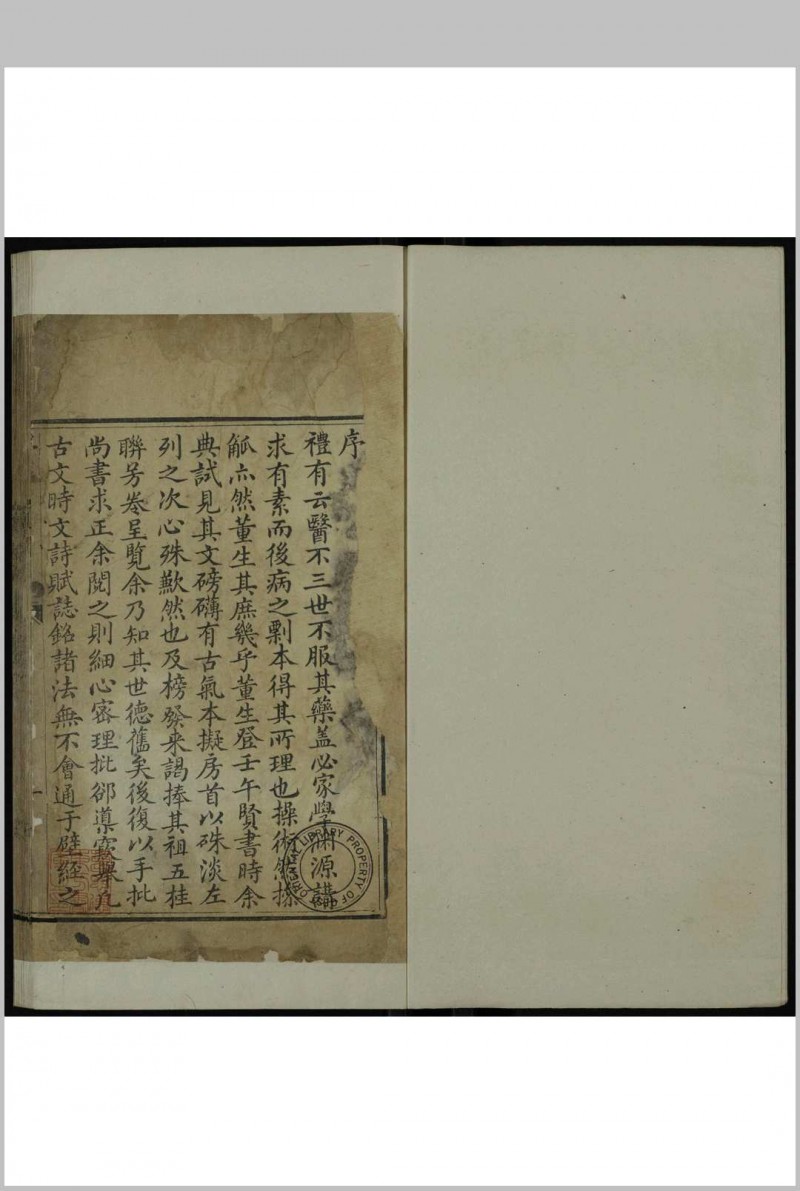 序
禮有云醫不三世不服其藥盖必家學淵源講
求有素而後病之剽本得其所理也操術然操
觚亦然董生其庶幾乎董生登壬午賢書時余
典試見其文磅礴有古氣本擬房首以硃淡左
列之次心殊歉然也及榜發来謁捧其祖五桂
聨芳卷呈覽余乃知其世德舊矣後復以手批
尚書求正余閱之則細心密理批郤導窾舉凡
古文時文詩賦誌銘諸法無不會通于壁經之
LIBRARY PROPERTY OF